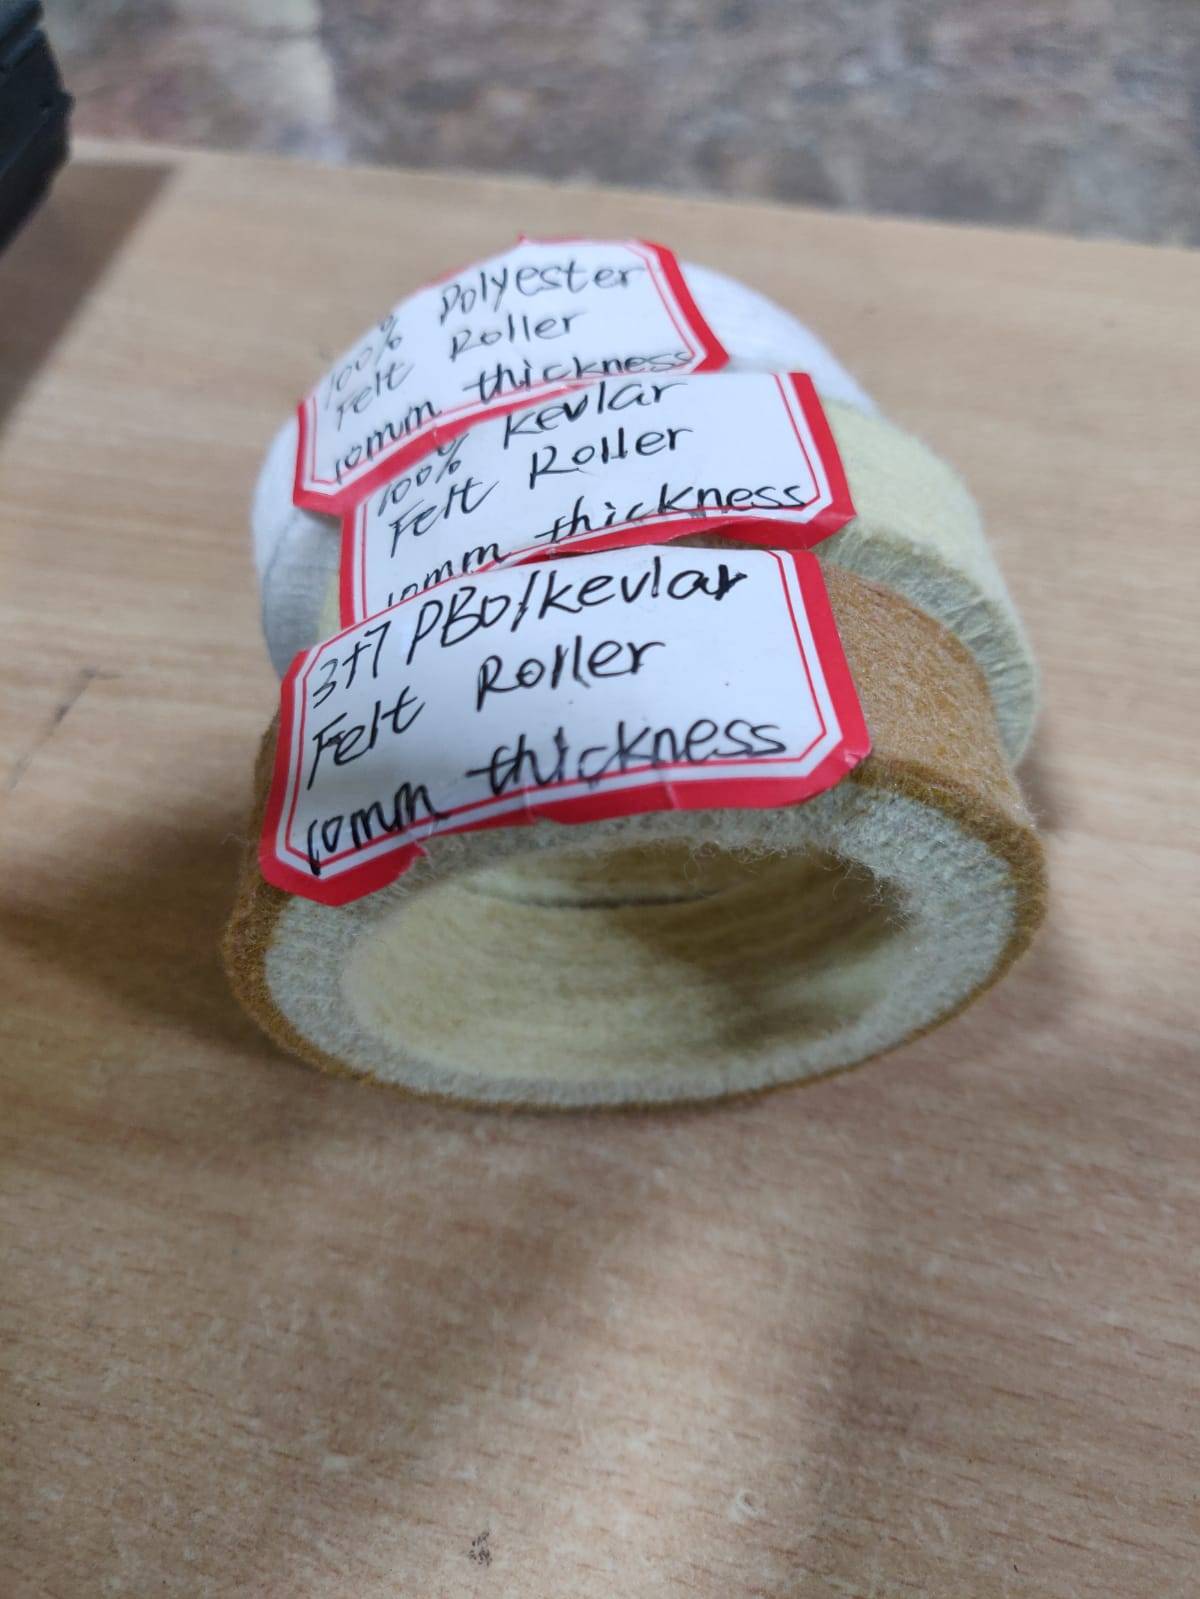 100% Polyester
Felt Roller
10mm thickness
100% Kevlar
Felt Roller
10mm thickness
3+7 PBO/kevlar
Felt Roller
10mm thickness